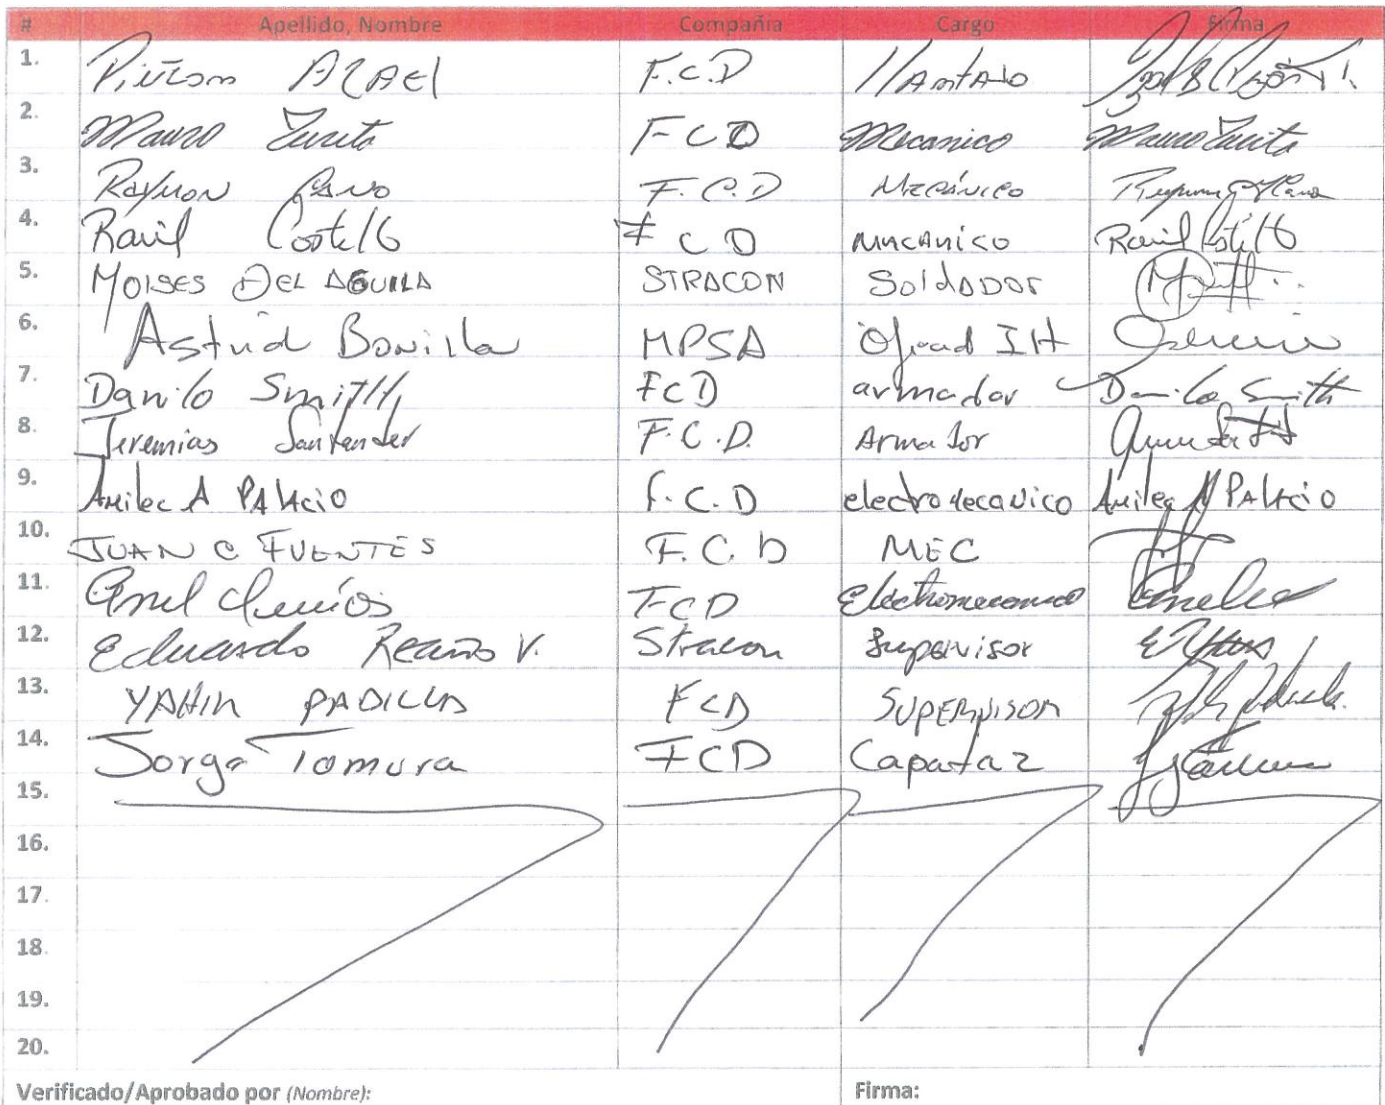 # Apellido, Nombre Compañia Cargo Firma
1. Pinzon AZAEl F.C.D llantaro
2. Mauro Zurita FCD Mecanico Mauro Zurita
3. Raymon Cano F.C.D Mecánico
4. Raúl Costello FCD mecanico Raúl Costello
5. MOISES DEL AGUILA STRACON SoldADOr
6. Astrid Bonilla MPSA Oficial IH
7. Danilo Smith FCD armador Danilo Smith
8. Jeremias Santander F.C.D. Armador
9. Amilec A PALAcio F.C.D electromecanico Amilec A PALAcio
10. JUAN C FUENTES F.C.D MEC
11. FCD Electromecanico
12. Eduardo Reaño V. Stracon Supervisor
13. YAHIR PADILLA FCD SUPERVISOR
14. Jorge Tomura FCD Capataz
15.
16.
17.
18.
19.
20.
Verificado/Aprobado por (Nombre): Firma: